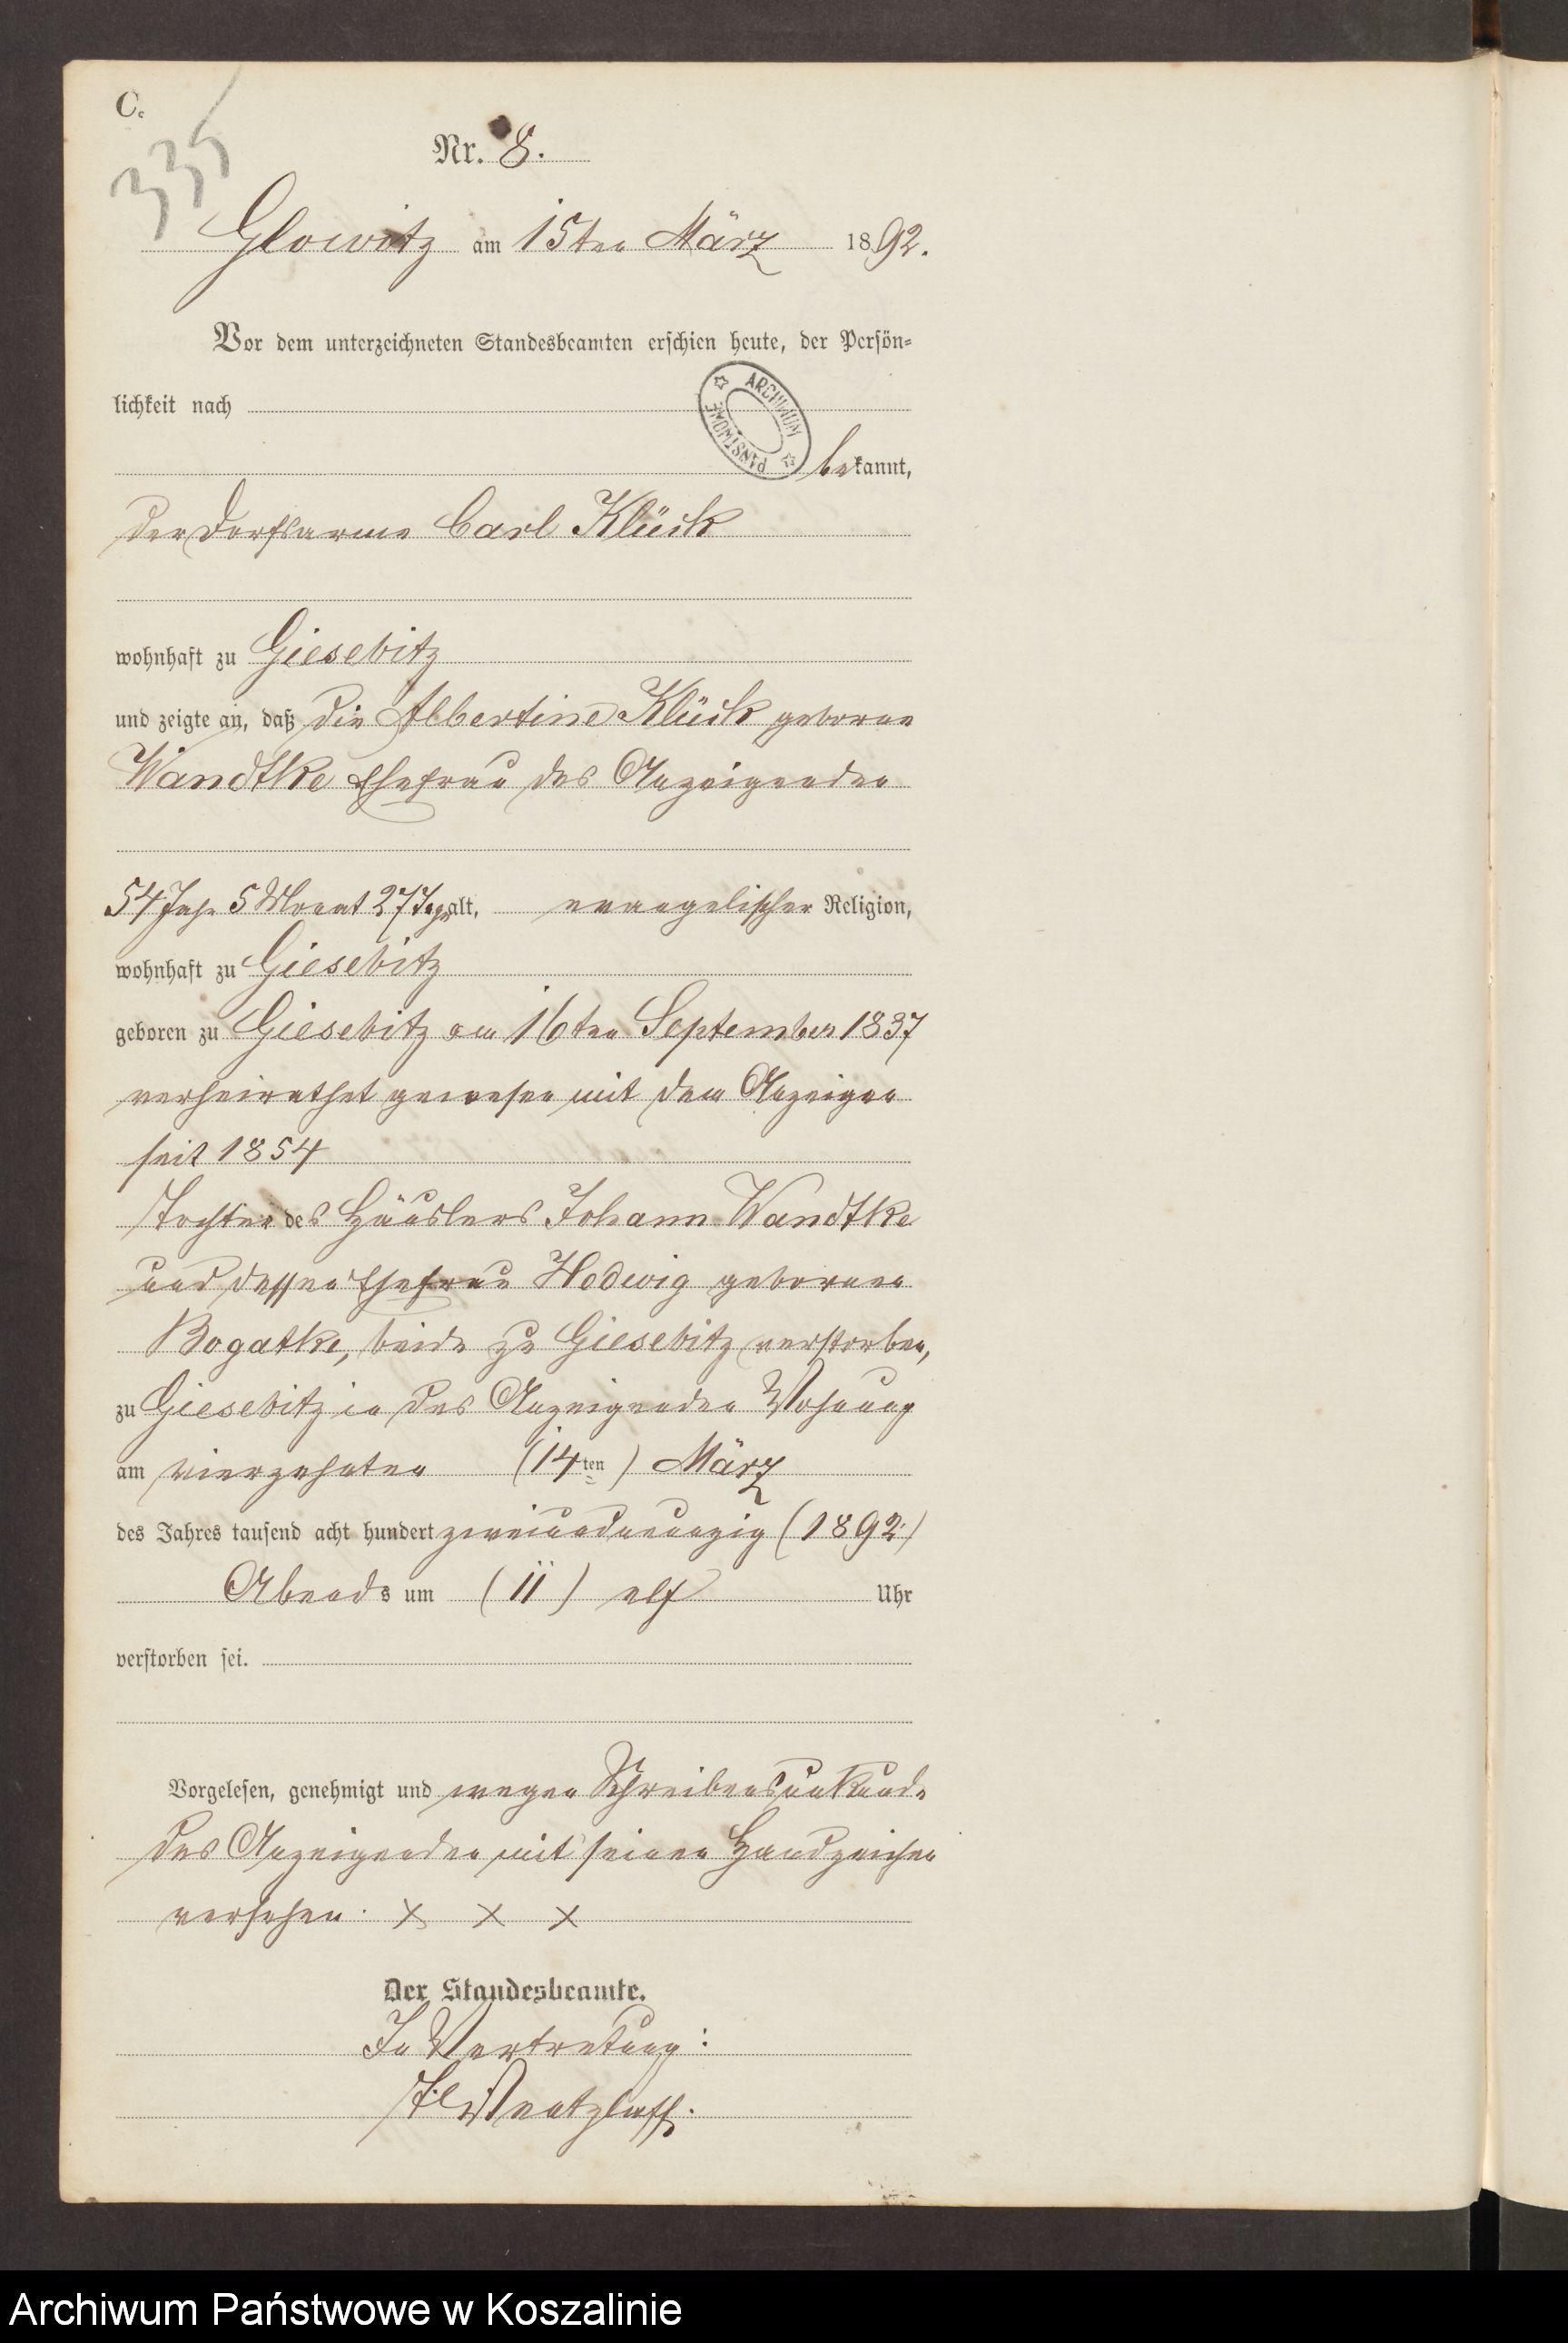 C.
335
Nr. 8.
Glowitz am 15ten März 1892.
Vor dem unterzeichneten Standesbeamten erschien heute, der Persön-
lichkeit nach
ARCHIWUM
PAŃSTWOWE
bekannt,
der Dorfsarme Carl Klück
wohnhaft zu Giesebitz
und zeigte an, daß die Albertine Klück geborne
Wandtke Ehefrau des Anzeigenden
54 Jahr 5 Monat 27 Tage alt, evangelischer Religion,
wohnhaft zu Giesebitz
geboren zu Giesebitz am 16ten September 1837
verheirathet gewesen mit dem Anzeigen
seit 1854
Tochter des Häuslers Johann Wandtke
und dessen Ehefrau Hedwig gebornen
Bogatke, beide zu Giesebitz verstorben,
zu Giesebitz in des Anzeigenden Wohnung
am vierzehnten (14ten) März
des Jahres tausend acht hundert zweiundneunzig (1892)
Abends um (11) elf Uhr
verstorben sei.
Vorgelesen, genehmigt und wegen Schreibensunkunde
des Anzeigenden mit seinen Handzeichen
versehen. x x x
Der Standesbeamte.
In Vertretung:
Archiwum Państwowe w Koszalinie